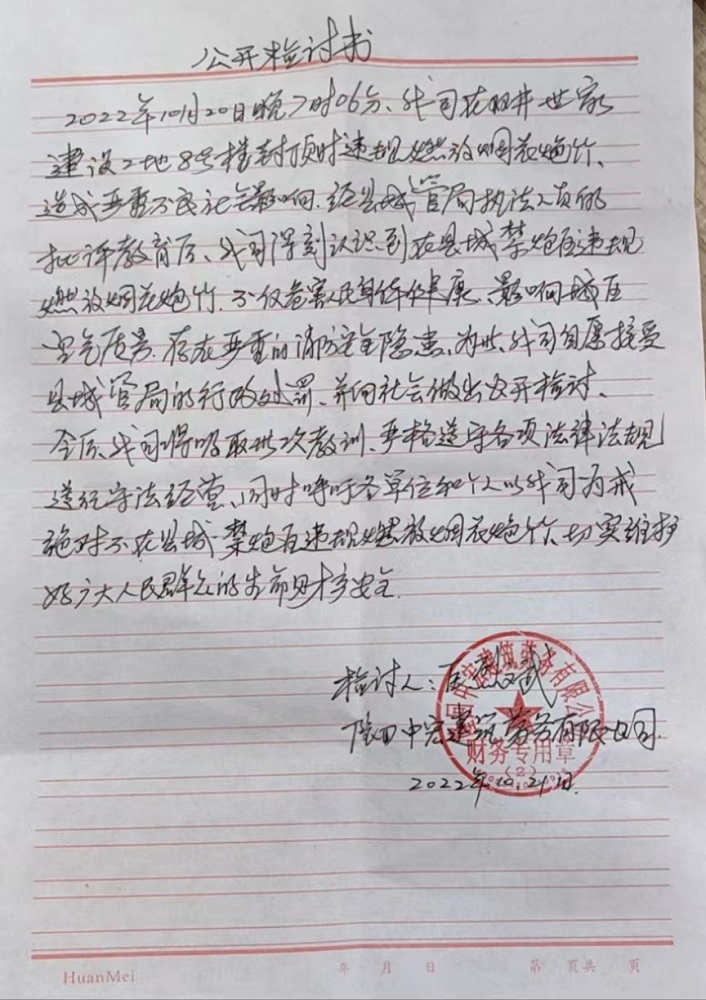 公开检讨书
2022年10月20日晚7时06分、我司在双井世家
建设工地8号楼封顶时违规燃放烟花炮竹、
造成严重不良社会影响.经县城管局执法人员的
批评教育后、我司深刻认识到在县城禁炮区违规
燃放烟花炮竹.不仅危害人民身体健康、影响城区
空气质量.存在严重的消防安全隐患、为此、我司自愿接受
县城管局的行政处罚、并向社会做出公开检讨、
今后、我司将吸取此次教训、严格遵守各项法律法规
遵纪守法经营、同时呼吁各单位和个人以我司为戒
绝对不在县城禁炮区违规燃放烟花炮竹、切实维护
好广大人民群众的生命财产安全.
检讨人:
中宏建筑劳务有限公司
财务专用章
(2)
2022年10.21日
HuanMei
年 月 日
第 页共 页